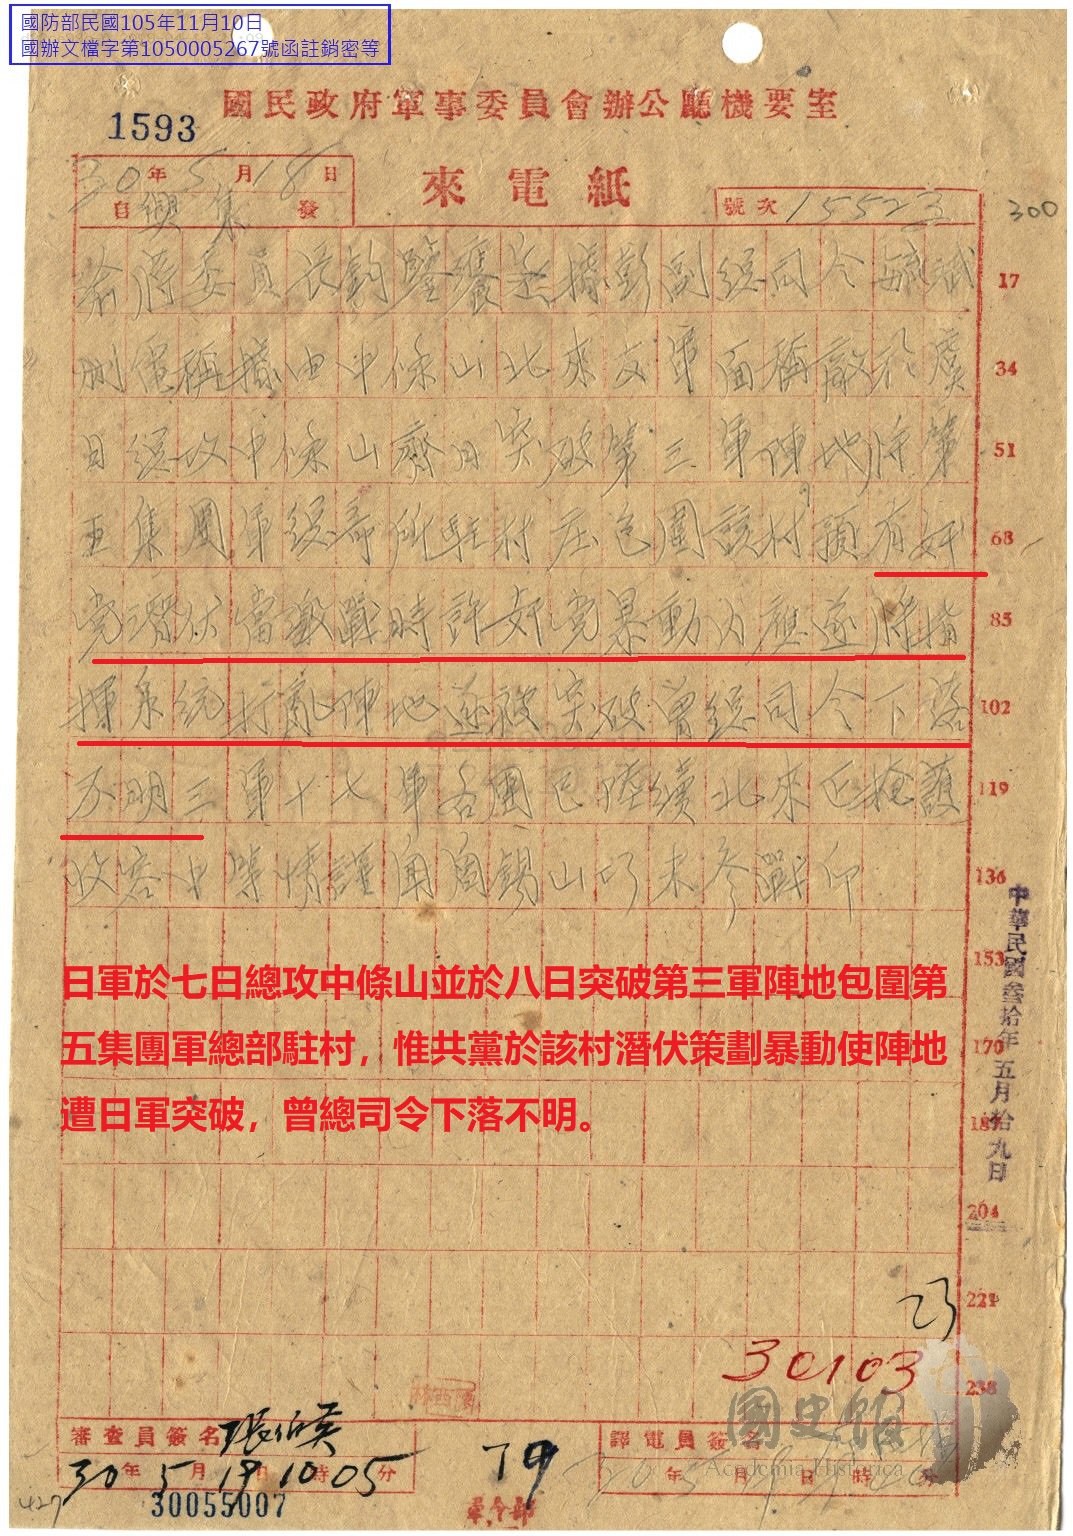 國防部民國105年11月10日
國辦文檔字第1050005267號函註銷密等
國民政府軍事委員會辦公廳機要室
1593
30年5月18日
來電紙
自興集發
號次 15523
300
渝蔣委員長鈞鑒據彭副總司令毓斌 17
電稱據由中條山北來友軍面稱敵於虞 34
日總攻中條山齊日突破第三軍陣地將第 51
五集團軍總部所駐村庄包圍該村預有奸 68
党潛伏當激戰時許奸党暴動内應遂將指 85
揮系統打亂陣地遂被突破曾總司令下落 102
不明三軍十七軍各團已陸續北來正掩護 119
收容中等情謹聞閻錫山巧未參戰印 136
日軍於七日總攻中條山並於八日突破第三軍陣地包圍第
五集團軍總部駐村，惟共黨於該村潛伏策劃暴動使陣地
遭日軍突破，曾總司令下落不明。
153
170
187
204
221
238
中華民國叁拾年五月拾九日
23
30103
國史館
Academia Historica
審查員簽名
30年5月19日10時05分
30055007
79
軍令部
譯電員簽名
年月日時分
427